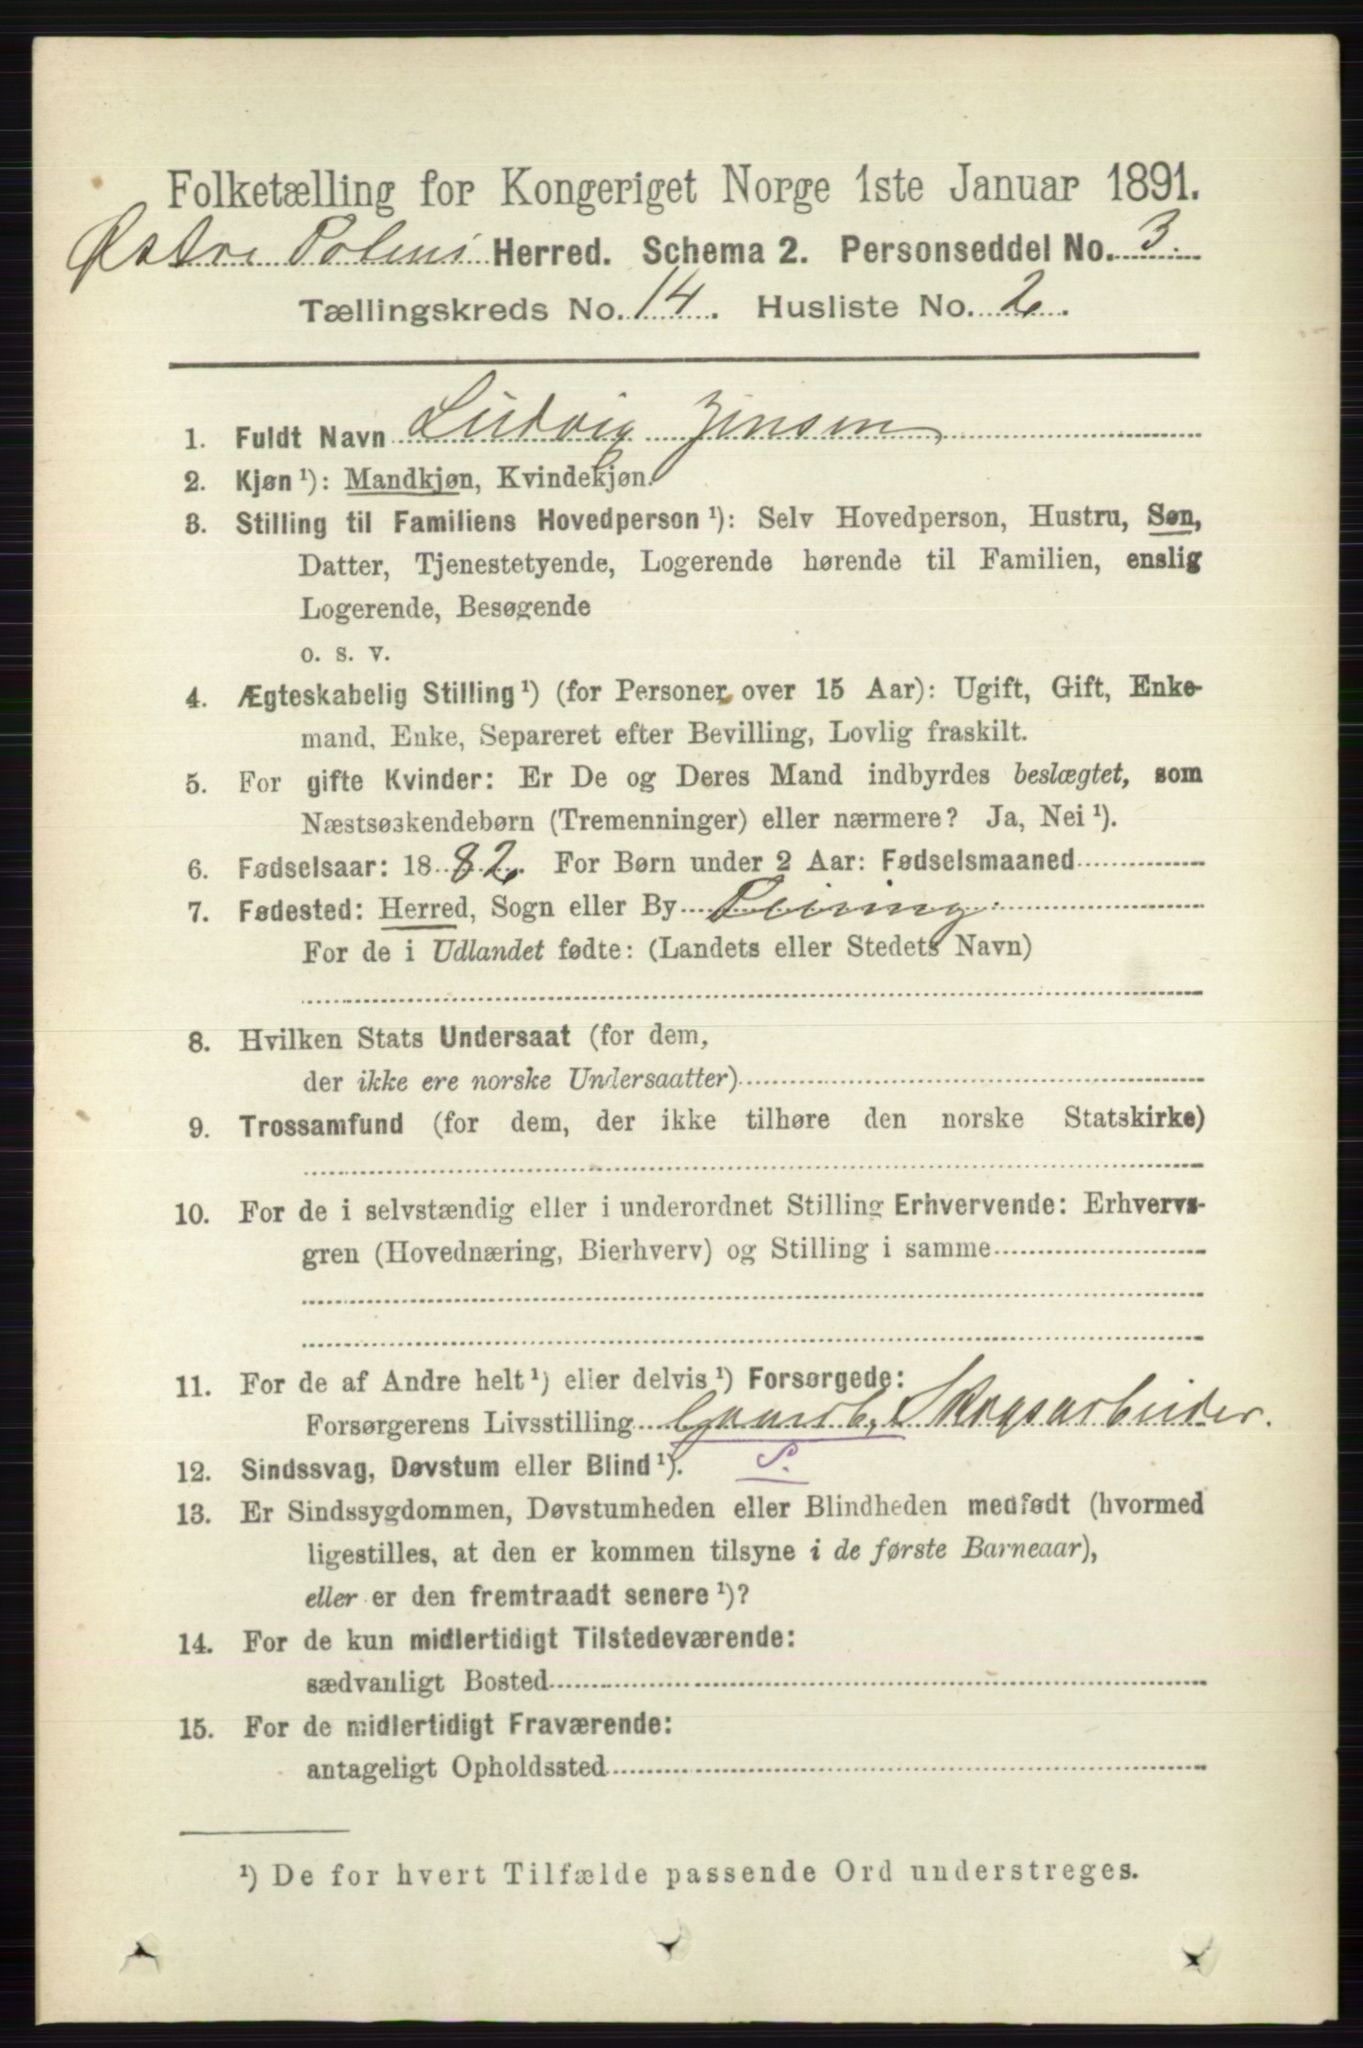 Folketælling for Kongeriget Norge 1ste Januar 1891.
Østre Tolens Herred. Schema 2. Personseddel No. 3.
Tællingskreds No. 14. Husliste No. 2.
1. Fuldt Navn Ludvig Jensen
2. Kjøn¹): Mandkjøn, Kvindekjøn.
3. Stilling til Familiens Hovedperson¹): Selv Hovedperson, Hustru, Søn,
Datter, Tjenestetyende, Logerende hørende til Familien, enslig
Logerende, Besøgende
o. s. v.
4. Ægteskabelig Stilling¹) (for Personer over 15 Aar): Ugift, Gift, Enke-
mand, Enke, Separeret efter Bevilling, Lovlig fraskilt.
5. For gifte Kvinder: Er De og Deres Mand indbyrdes beslægtet, som
Næstsøskendebørn (Tremenninger) eller nærmere? Ja, Nei¹).
6. Fødselsaar: 1882. For Børn under 2 Aar: Fødselsmaaned
7. Fødested: Herred, Sogn eller By
For de i Udlandet fødte: (Landets eller Stedets Navn)
8. Hvilken Stats Undersaat (for dem,
der ikke ere norske Undersaatter)
9. Trossamfund (for dem, der ikke tilhøre den norske Statskirke)
10. For de i selvstændig eller i underordnet Stilling Erhvervende: Erhvervs-
gren (Hovednæring, Bierhverv) og Stilling i samme
11. For de af Andre helt¹) eller delvis¹) Forsørgede:
Forsørgerens Livsstilling Gaardb, Skogsarbeider.
12. Sindssvag, Døvstum eller Blind¹). S.
13. Er Sindssygdommen, Døvstumheden eller Blindheden medfødt (hvormed
ligestilles, at den er kommen tilsyne i de første Barneaar),
eller er den fremtraadt senere¹)?
14. For de kun midlertidigt Tilstedeværende:
sædvanligt Bosted
15. For de midlertidigt Fraværende:
antageligt Opholdssted
¹) De for hvert Tilfælde passende Ord understreges.